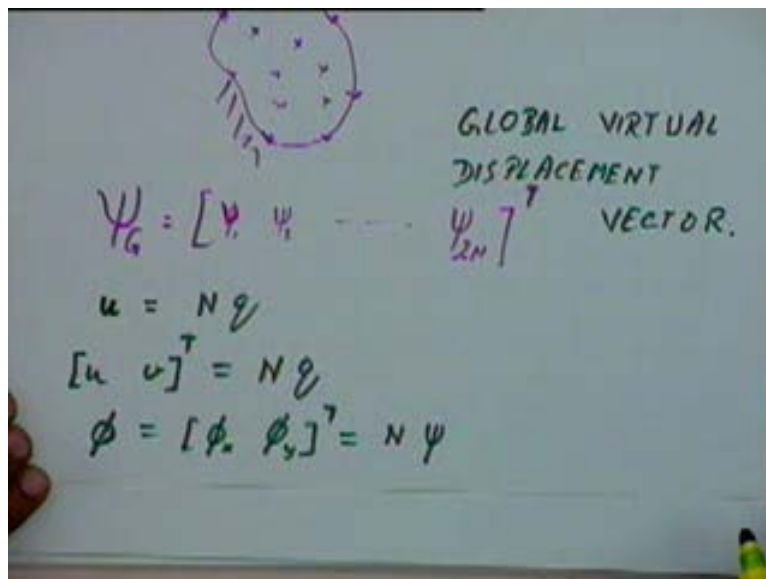 GLOBAL VIRTUAL
DISPLACEMENT
VECTOR.
Ψ_G = [Ψ₁ Ψ₂ ---- Ψ_2N]^T
u = N q
[u v]^T = N q
φ = [φₓ φ_y]^T = N ψ